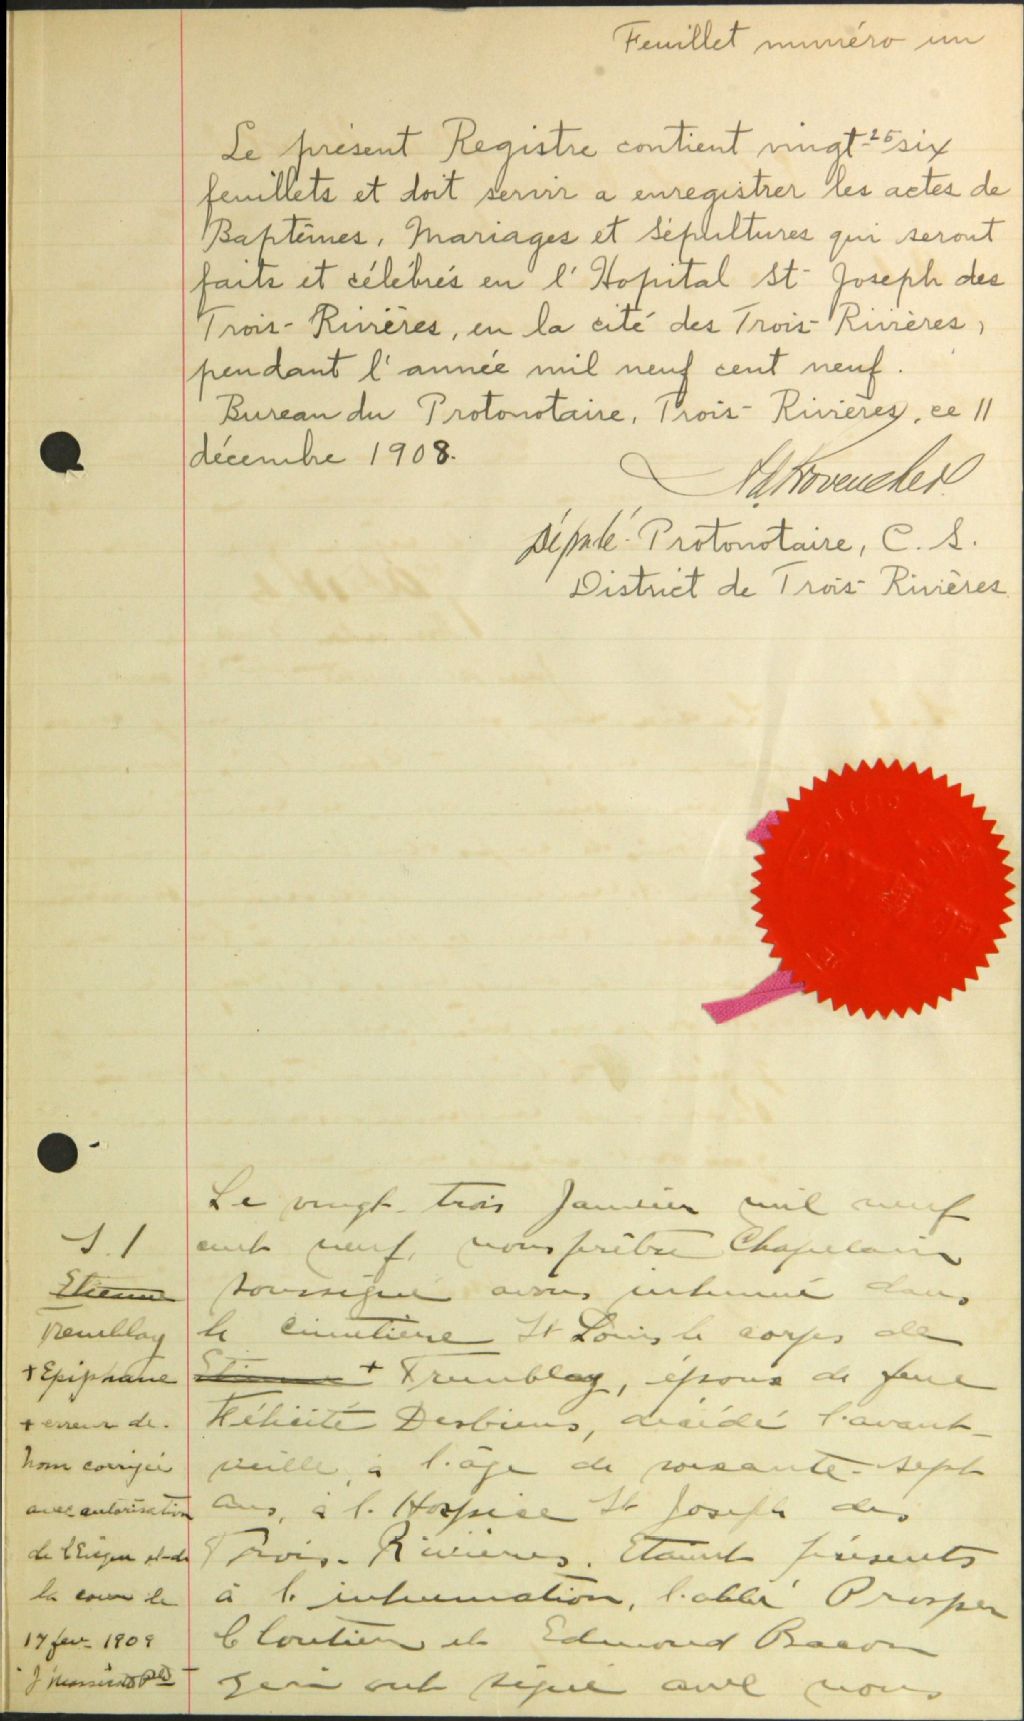 Feuillet numéro un
Le présent Registre contient vingt-26 six
feuillets et doit servir a enregistrer les actes de
Baptêmes, Mariages et Sépultures qui seront
faits et célébrés en l'Hopital St-Joseph des
Trois-Rivières, en la cité des Trois-Rivières,
pendant l'année mil neuf cent neuf.
Bureau du Protonotaire, Trois-Rivières, ce 11
décembre 1908.
Provencher
Député-Protonotaire, C. S.
District de Trois-Rivières
S. 1
Etienne
Tremblay
+ Epiphane
+ erreur de
nom corrigée
avec autorisation
de l'Evêque et de
la cour le
17 fev. 1909
Le vingt-trois Janvier mil neuf
cent neuf, nous prêtre Chapelain
soussigné avons inhumé dans
le cimetière St Louis le corps de
Etienne + Tremblay, époux de feue
Félicité Desbiens, décédé l'avant-
veille, à l'âge de soixante-sept
ans, à l'Hospice St Joseph des
Trois-Rivières. Etaient présents
à l'inhumation, l'abbé Prosper
Cloutier et Edmond Bacon
qui ont signé avec nous